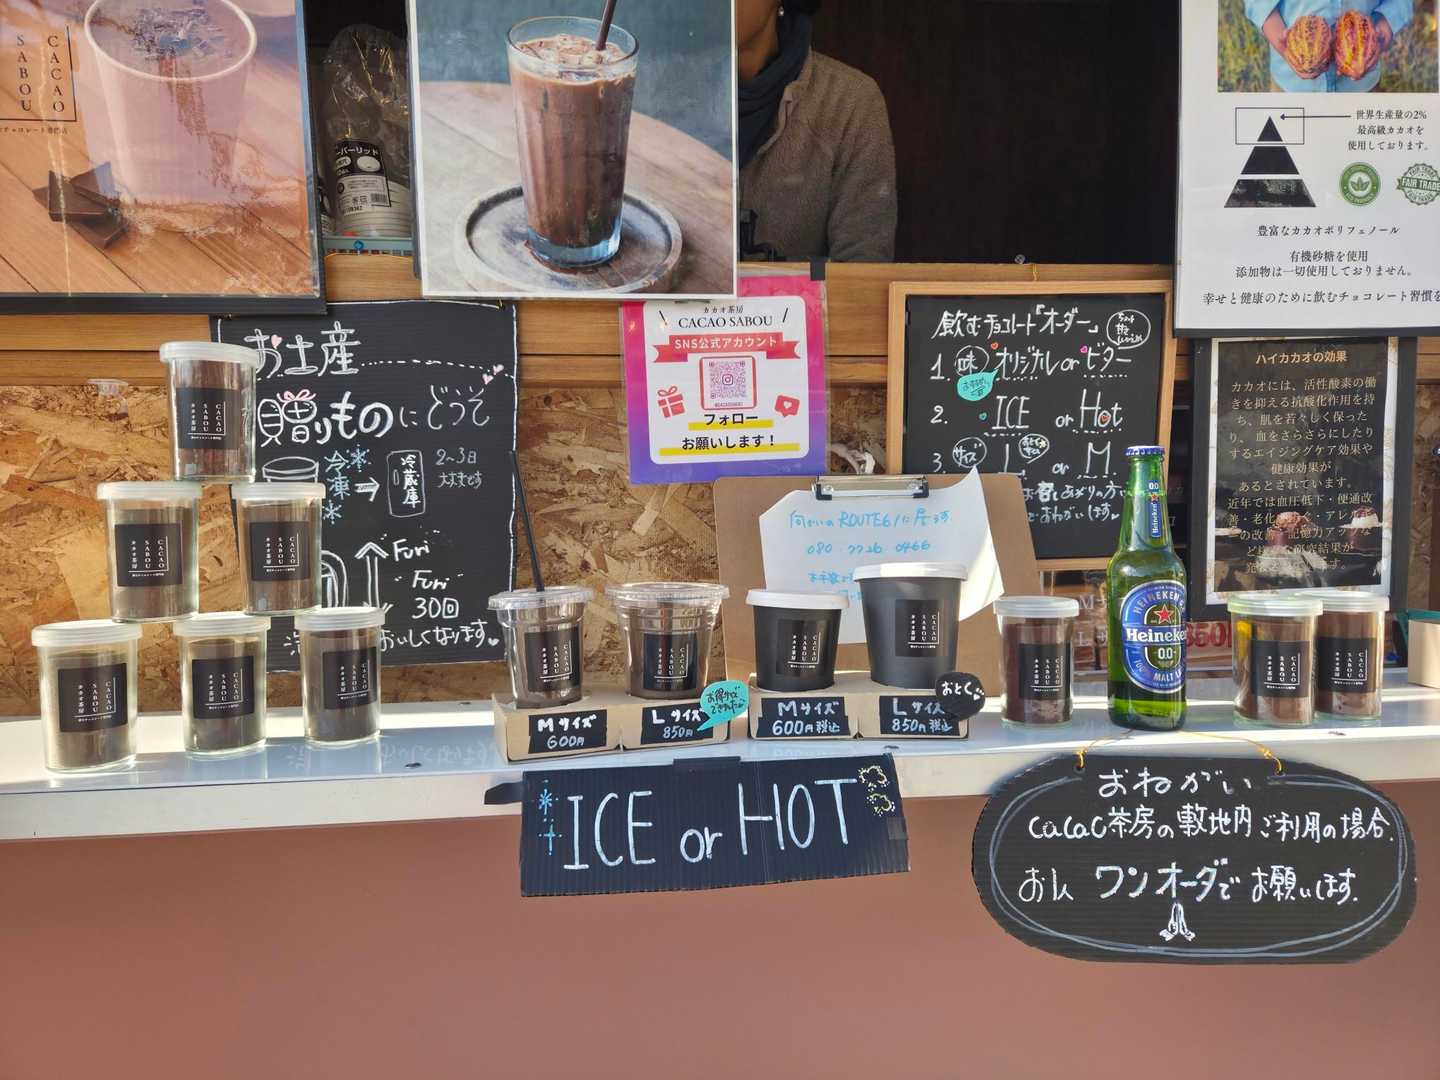 CACAO
SABOU
チョコレート専門店
ーパーリッド
世界生産量の2%
最高級カカオを
使用しております。
FAIR TRADE
豊富なカカオポリフェノール
有機砂糖を使用
添加物は一切使用しておりません。
幸せと健康のために飲むチョコレート習慣を
お土産
贈りものにどうぞ
冷凍
冷蔵庫
2~3日
大丈夫です
Furi
Furi
30回
おいしくなります
カカオ茶房
CACAO SABOU
SNS公式アカウント
フォロー
お願いします！
飲むチョコレート「オーダー」
1. 味 オリジナル or ビター
おすすめ
2. ICE or Hot
3. サイズ L or M
お召しあがりの方
おねがいします
ROUTE61に居ます
ハイカカオの効果
カカオには、活性酸素の働
きを抑える抗酸化作用を持
ち、肌を若々しく保った
り、血をさらさらにしたり
するエイジングケア効果や
健康効果が
あるとされています。
近年では血圧低下・便通改
HEINEKEN
Heineken
0.0
MALT
CACAO
SABOU
カカオ茶房
Mサイズ
600円
Lサイズ
850円
Mサイズ
600円税込
Lサイズ
850円税込
おとく
ICE or HOT
おねがい
CaCaO茶房の敷地内ご利用の場合、
お1人 ワンオーダーで お願いします。